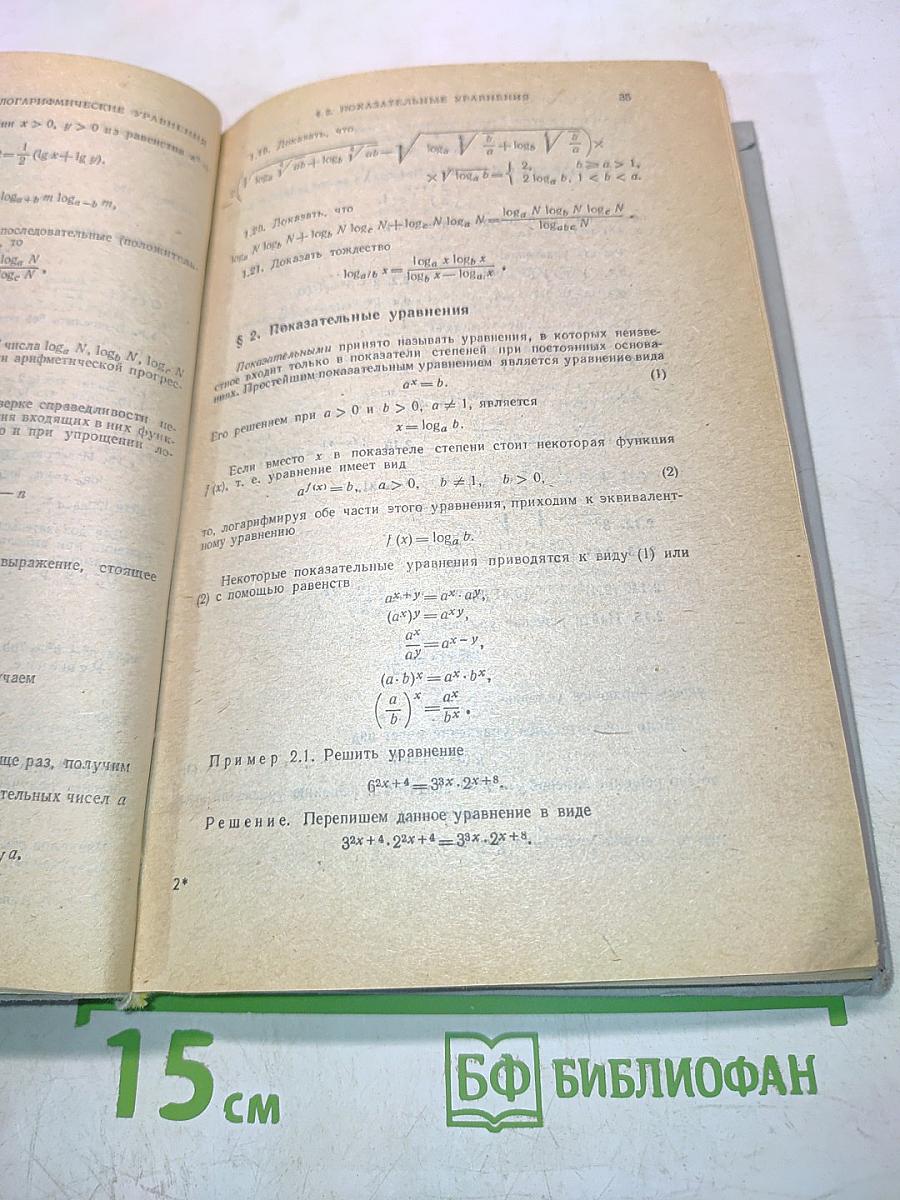 ЛОГАРИФМИЧЕСКИЕ УРАВНЕНИЯ
x > 0, y > 0 из равенства
= 1/2 (lg x + lg y).
log_{a+b} m log_{a−b} m,
последовательные (положитель-
, то
log_a N
log_c N .
числа log_a N, log_b N, log_c N
арифметической прогрес-
верке справедливости не-
ния входящих в них функ-
о и при упрощении ло-
— n
выражение, стоящее
чаем
ще раз, получим
тельных чисел a
y a,
§ 2. ПОКАЗАТЕЛЬНЫЕ УРАВНЕНИЯ 35
1.19. Доказать, что
(√(log_a ⁴√ab + log_b ⁴√ab) − √(log_a ⁴√(b/a) + log_b ⁴√(a/b))) ×
× √(log_a b) = { 2, b ⩾ a > 1,
2 log_a b, 1 < b < a.
1.20. Доказать, что
log_a N log_b N + log_b N log_c N + log_c N log_a N = (log_a N log_b N log_c N) / (log_{abc} N) .
1.21. Доказать тождество
log_{a/b} x = (log_a x log_b x) / (log_b x — log_a x) .
§ 2. Показательные уравнения
Показательными принято называть уравнения, в которых неизве-
стное входит только в показатели степеней при постоянных основа-
ниях. Простейшим показательным уравнением является уравнение вида
a^x = b. (1)
Его решением при a > 0 и b > 0, a ≠ 1, является
x = log_a b.
Если вместо x в показателе степени стоит некоторая функция
f (x), т. е. уравнение имеет вид
a^{f (x)} = b, a > 0, b ≠ 1, b > 0, (2)
то, логарифмируя обе части этого уравнения, приходим к эквивалент-
ному уравнению
f (x) = log_a b.
Некоторые показательные уравнения приводятся к виду (1) или
(2) с помощью равенств
a^{x+y} = a^x · a^y,
(a^x)^y = a^{xy},
a^x / a^y = a^{x−y},
(a · b)^x = a^x · b^x,
(a/b)^x = a^x / b^x .
Пример 2.1. Решить уравнение
6^{2x+4} = 3^{3x} · 2^{x+8}.
Решение. Перепишем данное уравнение в виде
3^{2x+4} · 2^{2x+4} = 3^{3x} · 2^{x+8}.
2*
15 см
БФ БИБЛИОФАН